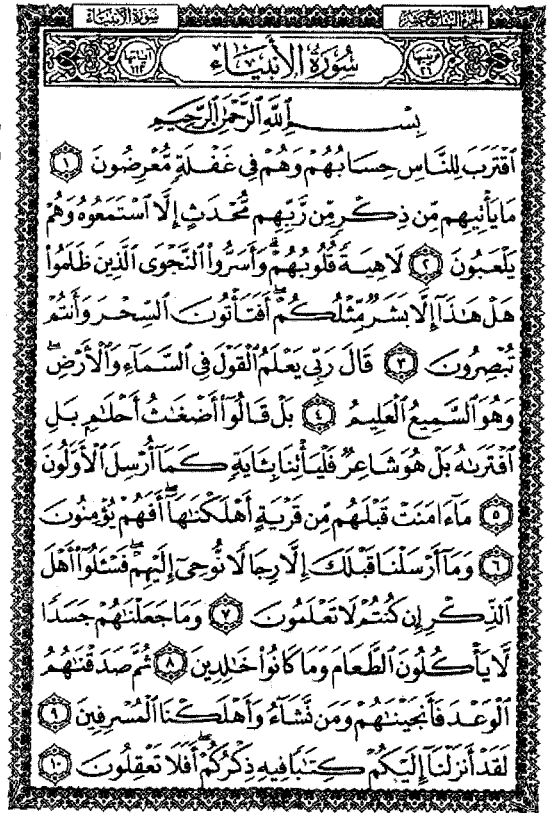 سُورَةُ الأَنْبِيَاءِ
الجزء السابع عشر
سُورَةُ الأَنبِيَاءِ
بِسْمِ ٱللَّهِ ٱلرَّحْمَٰنِ ٱلرَّحِيمِ
ٱقْتَرَبَ لِلنَّاسِ حِسَابُهُمْ وَهُمْ فِى غَفْلَةٍ مُّعْرِضُونَ ١
مَا يَأْتِيهِم مِّن ذِكْرٍ مِّن رَّبِّهِم مُّحْدَثٍ إِلَّا ٱسْتَمَعُوهُ وَهُمْ
يَلْعَبُونَ ٢ لَاهِيَةً قُلُوبُهُمْ ۗ وَأَسَرُّوا۟ ٱلنَّجْوَى ٱلَّذِينَ ظَلَمُوا۟
هَلْ هَٰذَآ إِلَّا بَشَرٌ مِّثْلُكُمْ ۖ أَفَتَأْتُونَ ٱلسِّحْرَ وَأَنتُمْ
تُبْصِرُونَ ٣ قَالَ رَبِّى يَعْلَمُ ٱلْقَوْلَ فِى ٱلسَّمَآءِ وَٱلْأَرْضِ ۖ
وَهُوَ ٱلسَّمِيعُ ٱلْعَلِيمُ ٤ بَلْ قَالُوٓا۟ أَضْغَٰثُ أَحْلَٰمٍۭ بَلِ
ٱفْتَرَىٰهُ بَلْ هُوَ شَاعِرٌ فَلْيَأْتِنَا بِـَٔايَةٍ كَمَآ أُرْسِلَ ٱلْأَوَّلُونَ
٥ مَآ ءَامَنَتْ قَبْلَهُم مِّن قَرْيَةٍ أَهْلَكْنَٰهَآ ۖ أَفَهُمْ يُؤْمِنُونَ
٦ وَمَآ أَرْسَلْنَا قَبْلَكَ إِلَّا رِجَالًا نُّوحِىٓ إِلَيْهِمْ ۖ فَسْـَٔلُوٓا۟ أَهْلَ
ٱلذِّكْرِ إِن كُنتُمْ لَا تَعْلَمُونَ ٧ وَمَا جَعَلْنَٰهُمْ جَسَدًا
لَّا يَأْكُلُونَ ٱلطَّعَامَ وَمَا كَانُوا۟ خَٰلِدِينَ ٨ ثُمَّ صَدَقْنَٰهُمُ
ٱلْوَعْدَ فَأَنجَيْنَٰهُمْ وَمَن نَّشَآءُ وَأَهْلَكْنَا ٱلْمُسْرِفِينَ ٩
لَقَدْ أَنزَلْنَآ إِلَيْكُمْ كِتَٰبًا فِيهِ ذِكْرُكُمْ ۖ أَفَلَا تَعْقِلُونَ ١٠